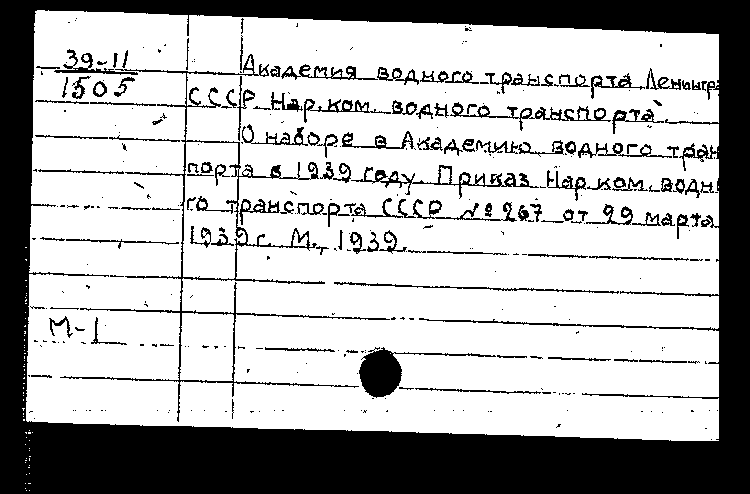 39-11
1505
Академия водного транспорта Ленингра
СССР. Нар. ком. водного транспорта.
О наборе в Академию водного тран
порта в 1939 году. Приказ Нар. ком. водн
го транспорта СССР № 267 от 29 марта
1939 г. М., 1939.
М-1